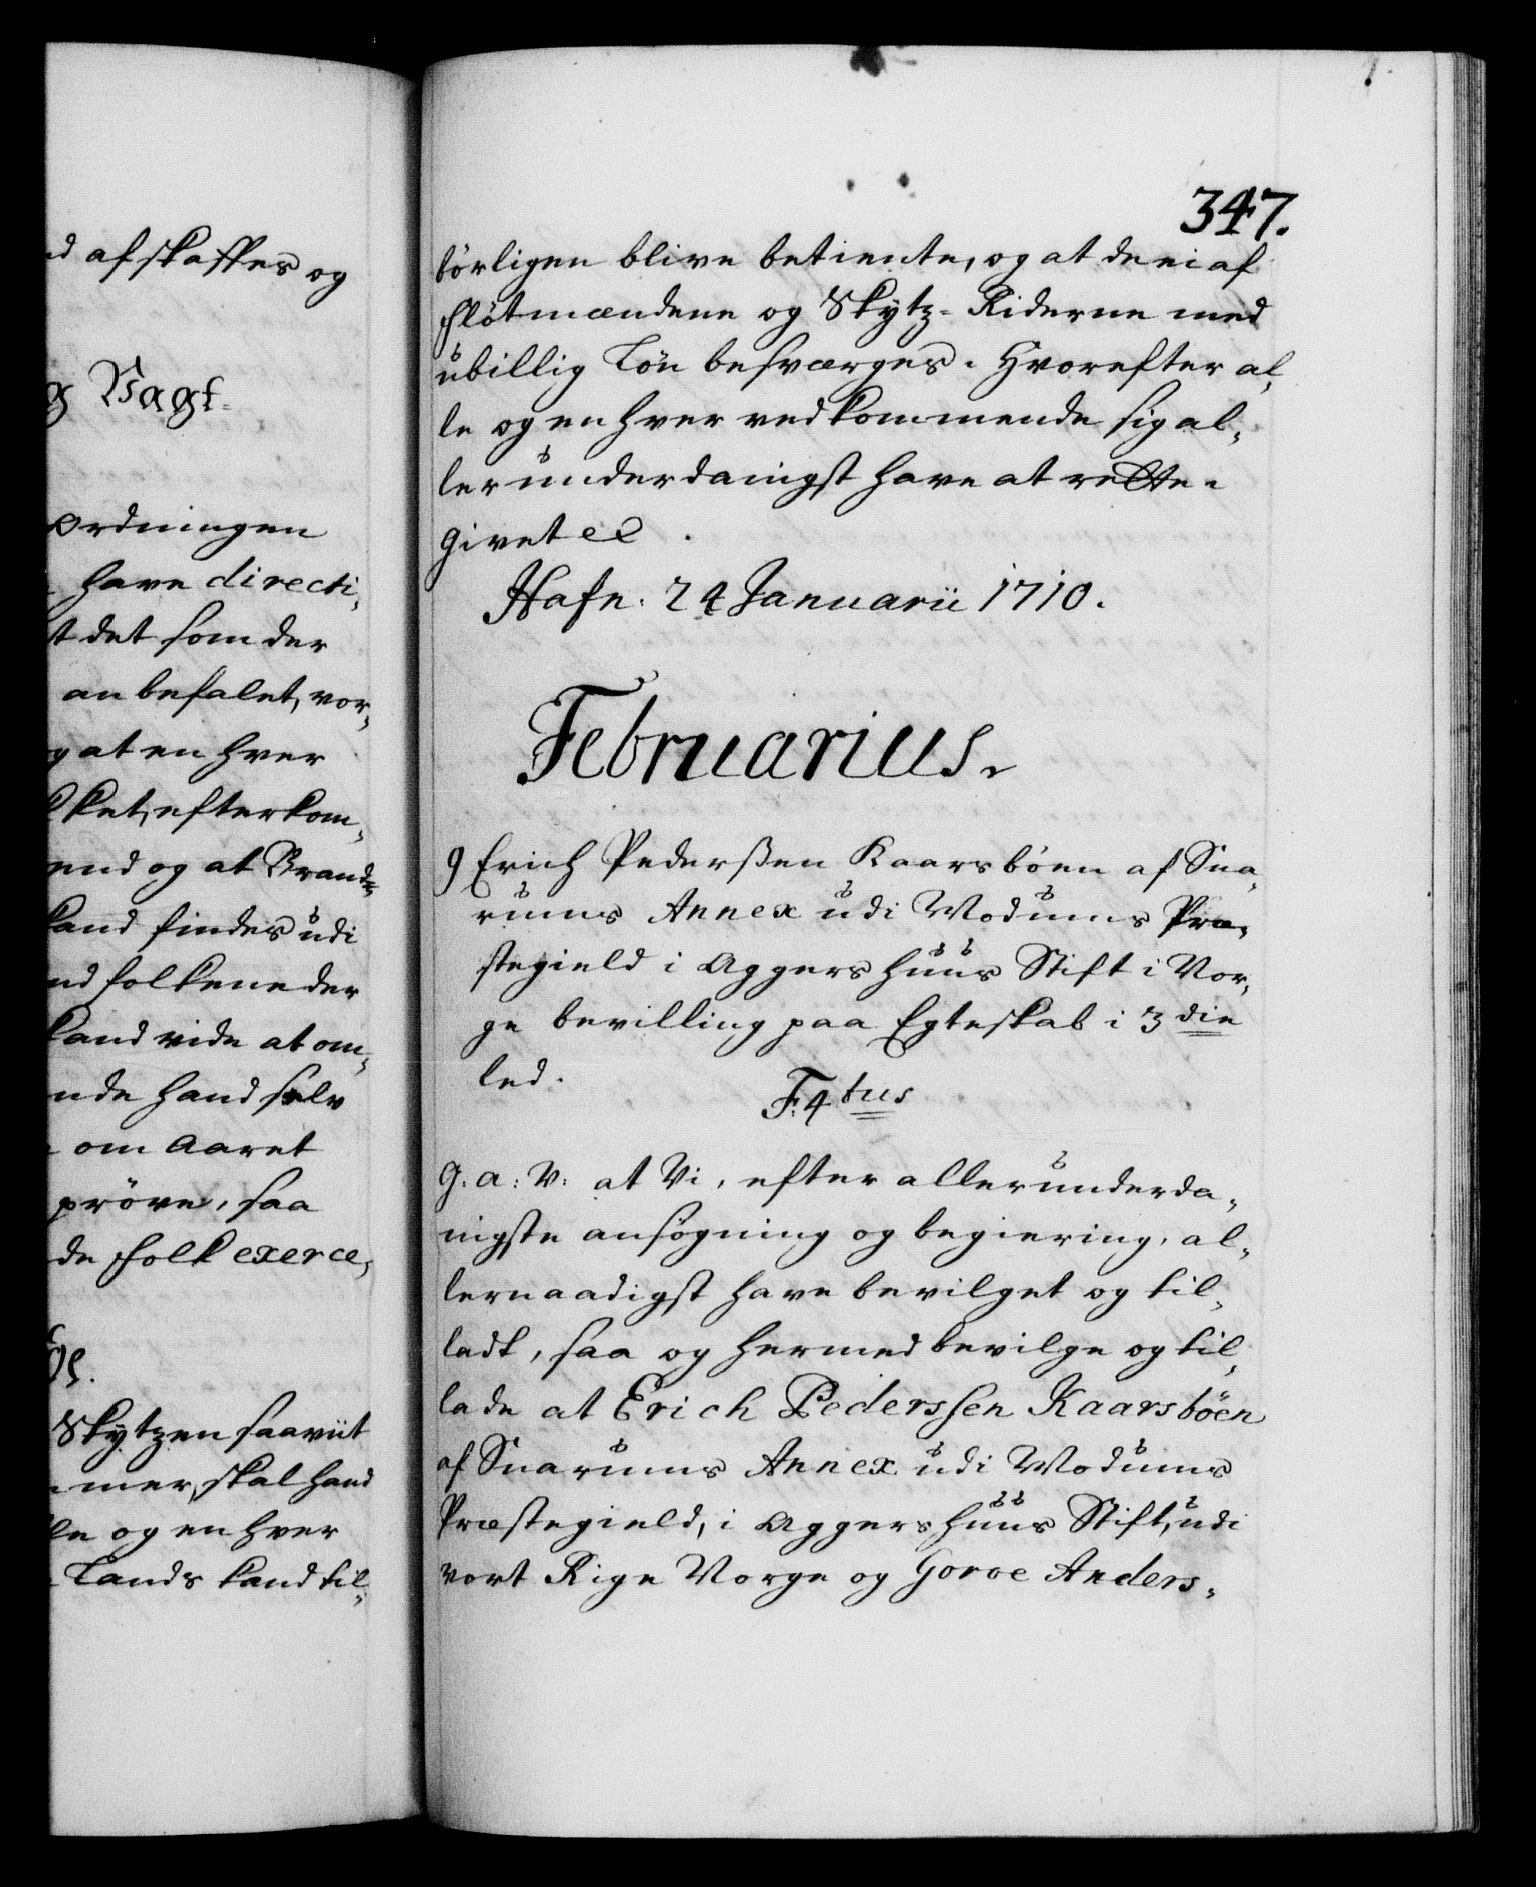 nd afskaffes og
g Vagt
ordningen
have directi,
t det som der
anbefalet, vor,
g at en hver
kket, efterkom,
end og at Brand=
kand findes udi
nd folkene der
kand vide at om,
nde hand selv
om Aaret
prøve, saa
de Folk exerce,
Skytzen saaviit
mer, skal hand
le og en hver
Lands kand til,
347.
børligen blive betiente, og at de ei af
Fløtmændene og Skytz-Riderne med
ubillig Løn besværges. Hvorefter al,
le og en hver vedkommende sig al,
lerunderdanigst have at rette.
Givet ec.
Hafn. 24 Januarii 1710.
Februarius.
9 Erich Pederssen Kaarsbøen af Sna,
rums Annex udi Modums Præ,
stegield i Aggershuus Stift i Nor,
ge bevilling paa Egteskab i 3die
led.
F. 4tus
G. a: V: at Vi, efter allerunderda,
nigste ansøgning og begiering, al,
lernaadigst have bevilget og til,
ladt, saa og hermed bevilge og til,
lade at Erich Pederssen Kaarsbøen
af Snarums Annex udi Modums
Præstegield, i Aggershuus Stift, udi
vort Rige Norge og Goroe Anders,